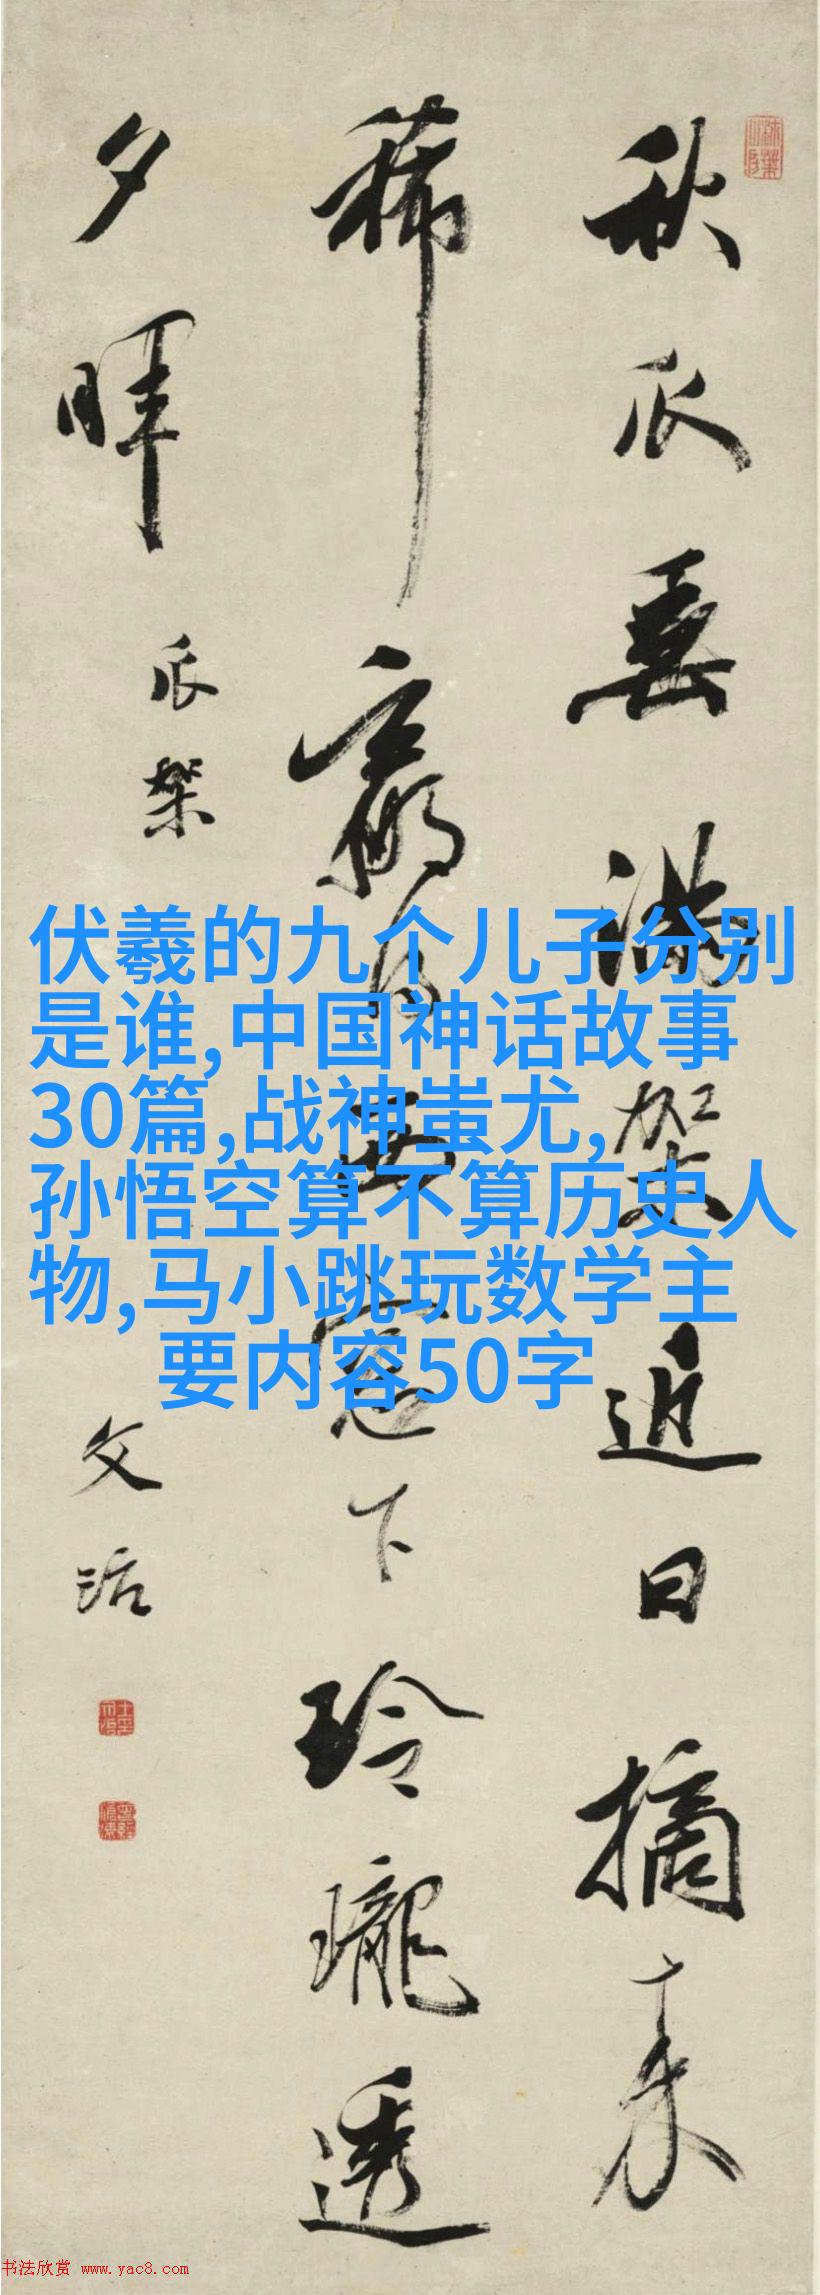 秋瓜垂滿架近日摘来
稀贏得西窗下玲瓏透
夕暉
瓜架
文治
伏羲的九个儿子分别
是谁,中国神话故事
30篇,战神蚩尤,
孙悟空算不算历史人
物,马小跳玩数学主
要内容50字
书法欣赏 www.yac8.com